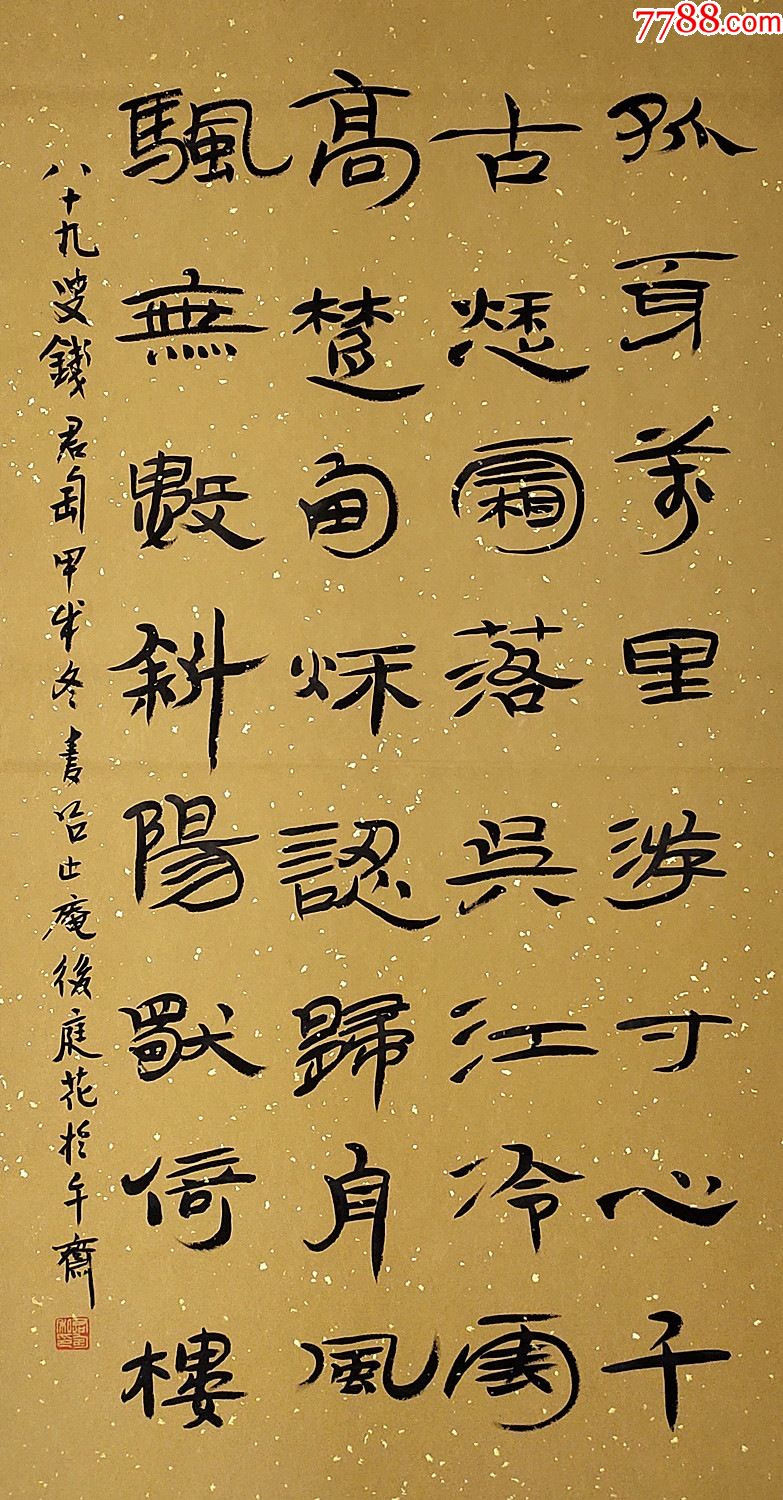 7788.com
孤身萬里游寸心千
古愁霜落吳江冷雲
高楚甸秋認歸舟風
颿無數斜陽獨倚樓
八十九叟錢君匋甲戌冬書呂止庵後庭花於午齋